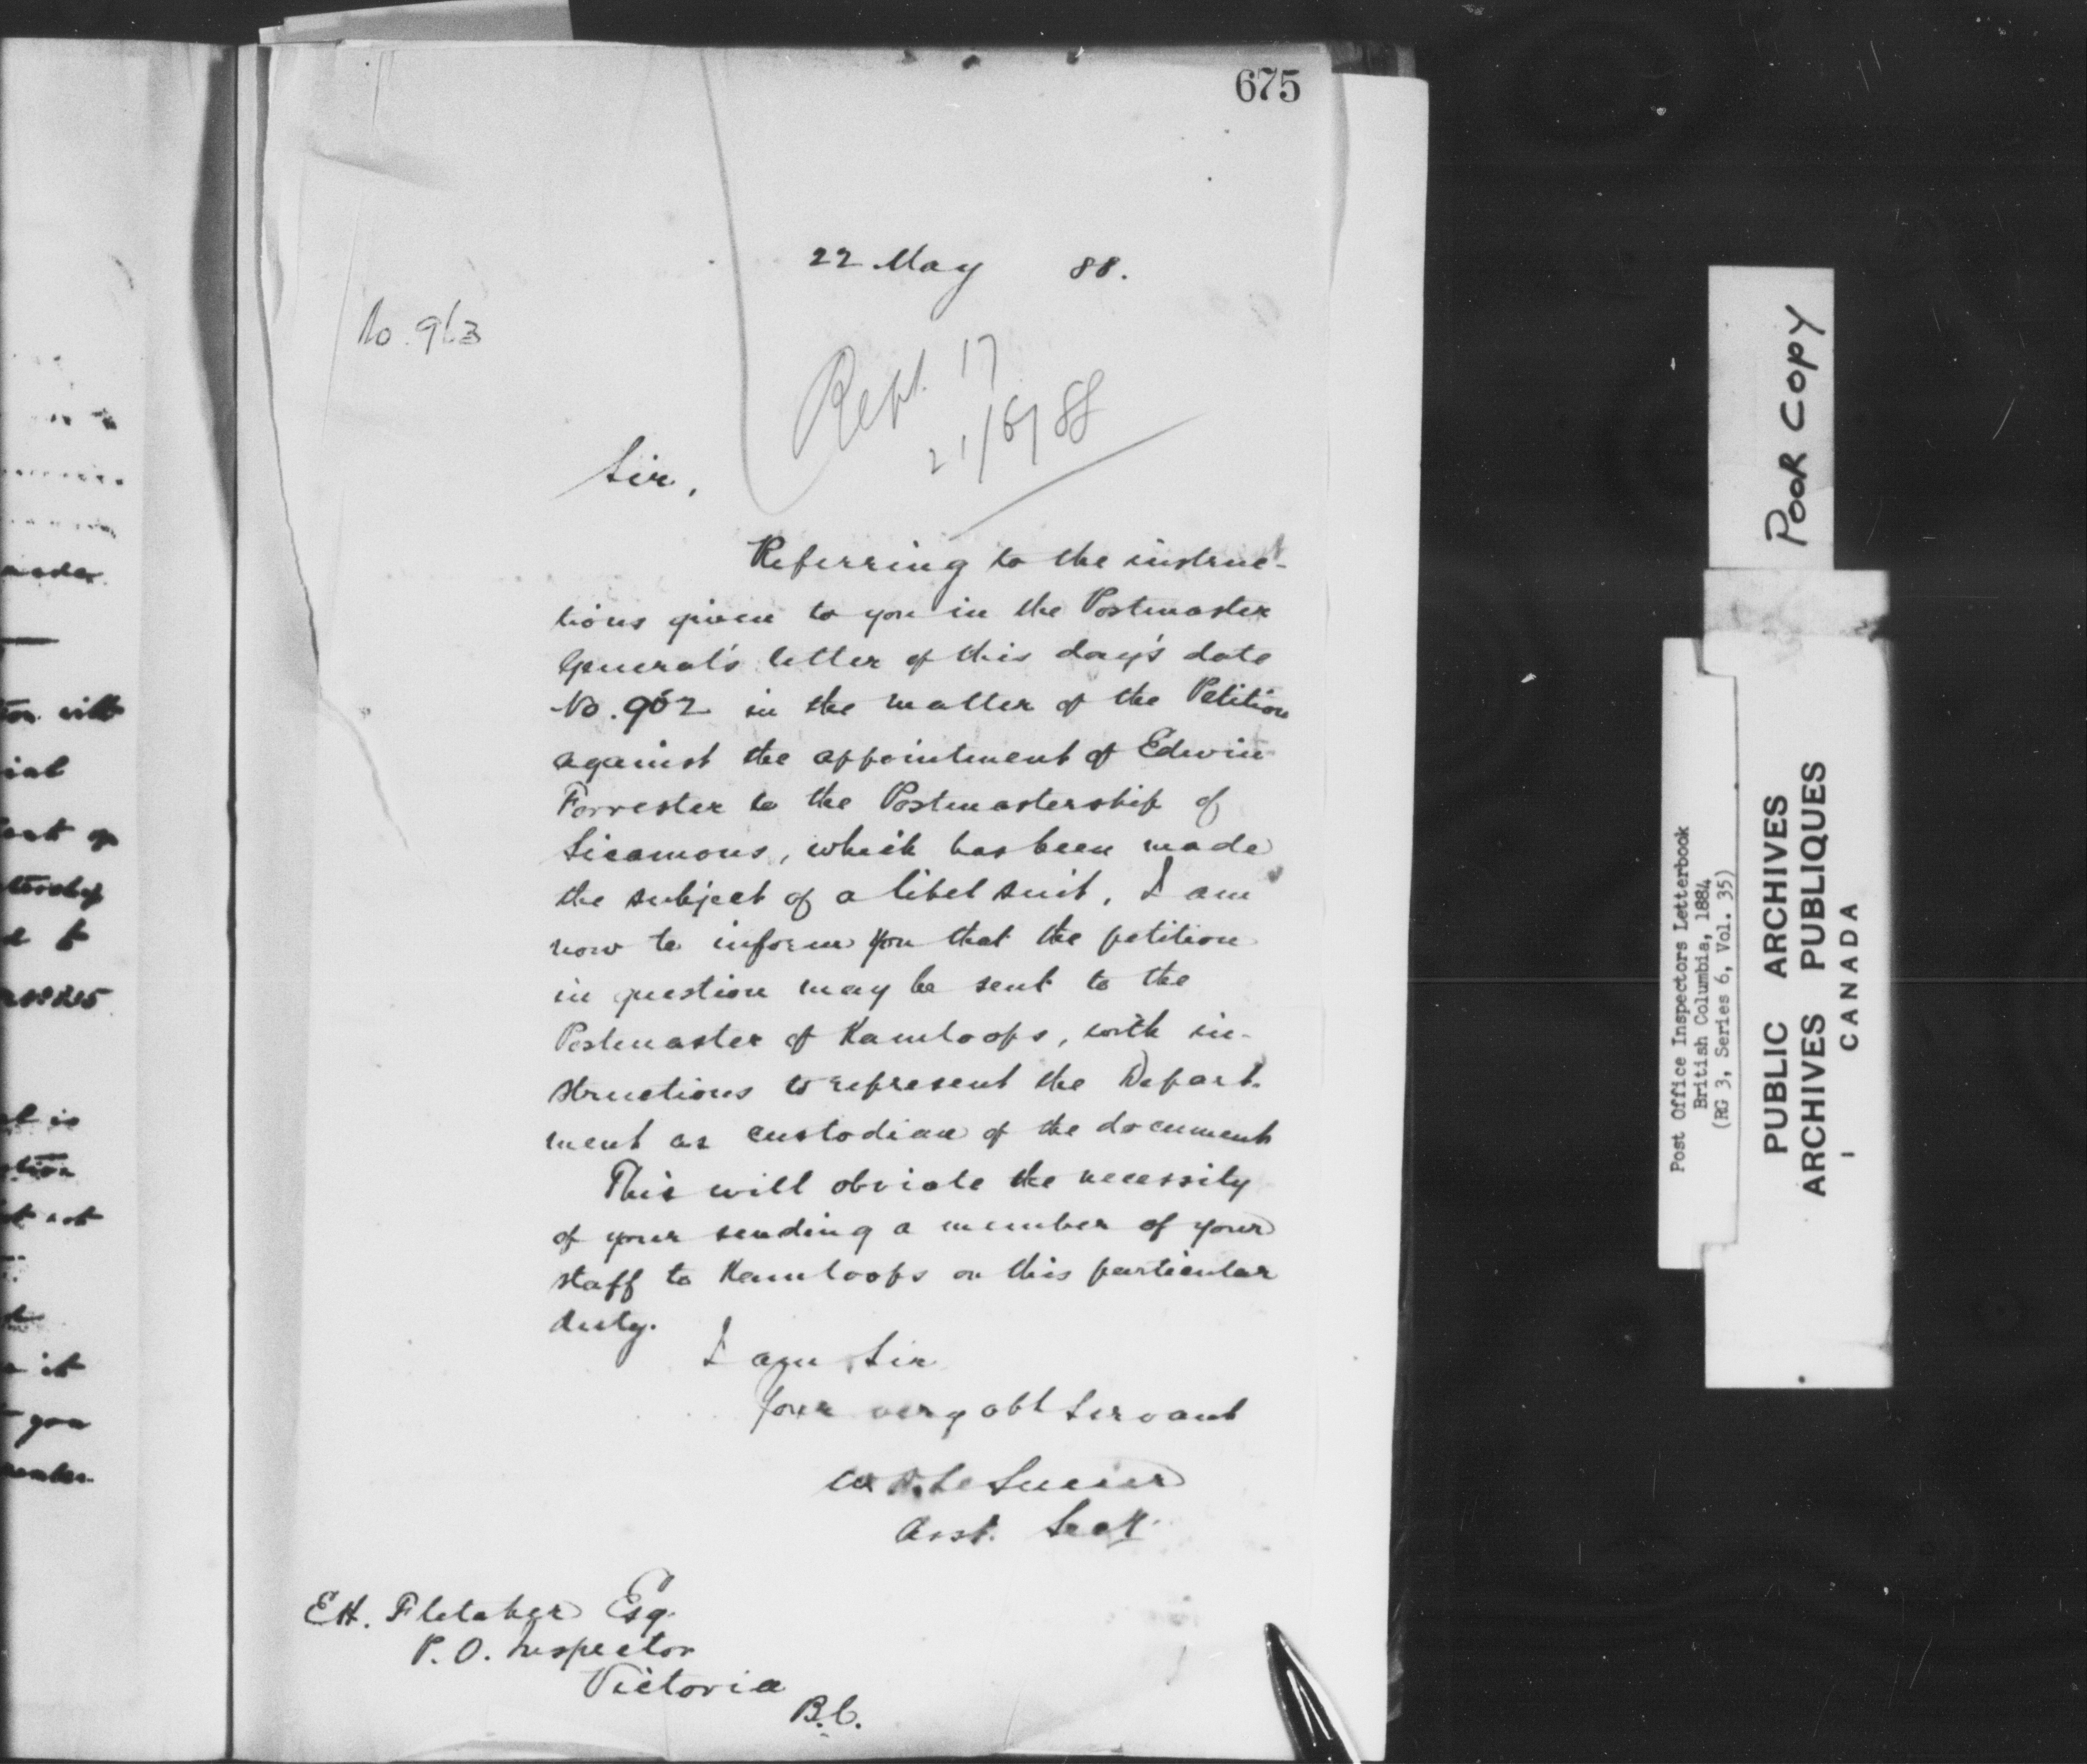 675
22 May 88.
No. 963
Rept. 17
21/6/88
Sir,
Referring to the instruc-
tions given to you in the Postmaster
General's letter of this day's date
No. 962 in the matter of the Petition
against the appointment of Edwin
Forrester to the Postmastership of
Sicamous, which has been made
the subject of a libel suit, I am
now to inform you that the petition
in question may be sent to the
Postmaster of Kamloops, with in-
structions to represent the Depart-
ment as custodian of the document
This will obviate the necessity
of your sending a member of your
staff to Kamloops on this particular
duty.
I am, Sir
Your very obt Servant
W D LeSueur
Asst. Secy
E.H. Fletcher Esq.
P.O. Inspector
Victoria
B.C.
ial
it
you
Poor Copy
Post Office Inspectors Letterbook
British Columbia, 1884
(RG 3, Series 6, Vol. 35)
PUBLIC ARCHIVES
ARCHIVES PUBLIQUES
CANADA